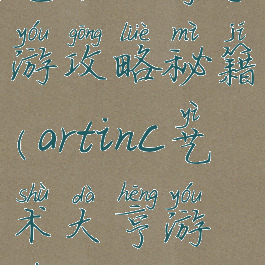 yóu gōng lüè mì jí
游攻略秘籍
yì
(artinc艺
shù dà hēng yóu
术大亨游